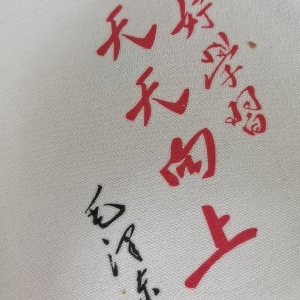 好学習
天天向上
毛泽东